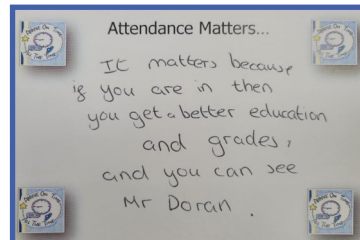 Attendance Matters...
It matters because
if you are in then
you get a better education
and grades,
and you can see
Mr Doran.